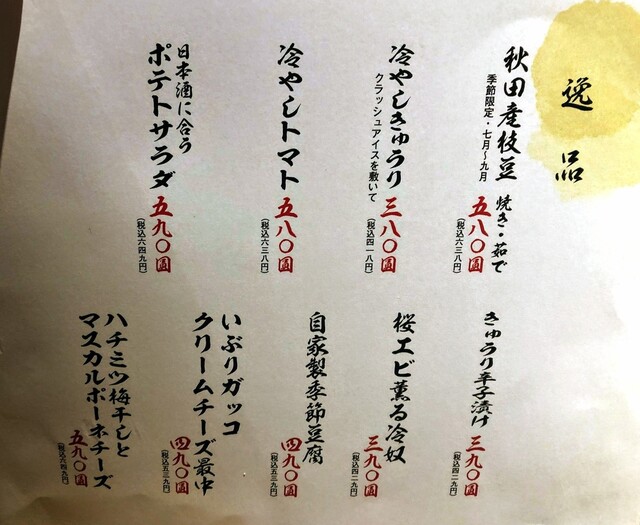 逸品
秋田産枝豆 焼き・茹で
季節限定・七月〜九月
五八〇圓
(税込六三八円)
冷やしきゅうり
クラッシュアイスを敷いて
三八〇圓
(税込四一八円)
冷やしトマト
五八〇圓
(税込六三八円)
日本酒に合う
ポテトサラダ
五九〇圓
(税込六四九円)
きゅうり辛子漬け
三九〇圓
(税込四二九円)
桜エビ薫る冷奴
三九〇圓
(税込四二九円)
自家製季節豆腐
四九〇圓
(税込五三九円)
いぶりガッコ
クリームチーズ最中
四九〇圓
(税込五三九円)
ハチミツ梅干しと
マスカルポーネチーズ
五九〇圓
(税込六四九円)